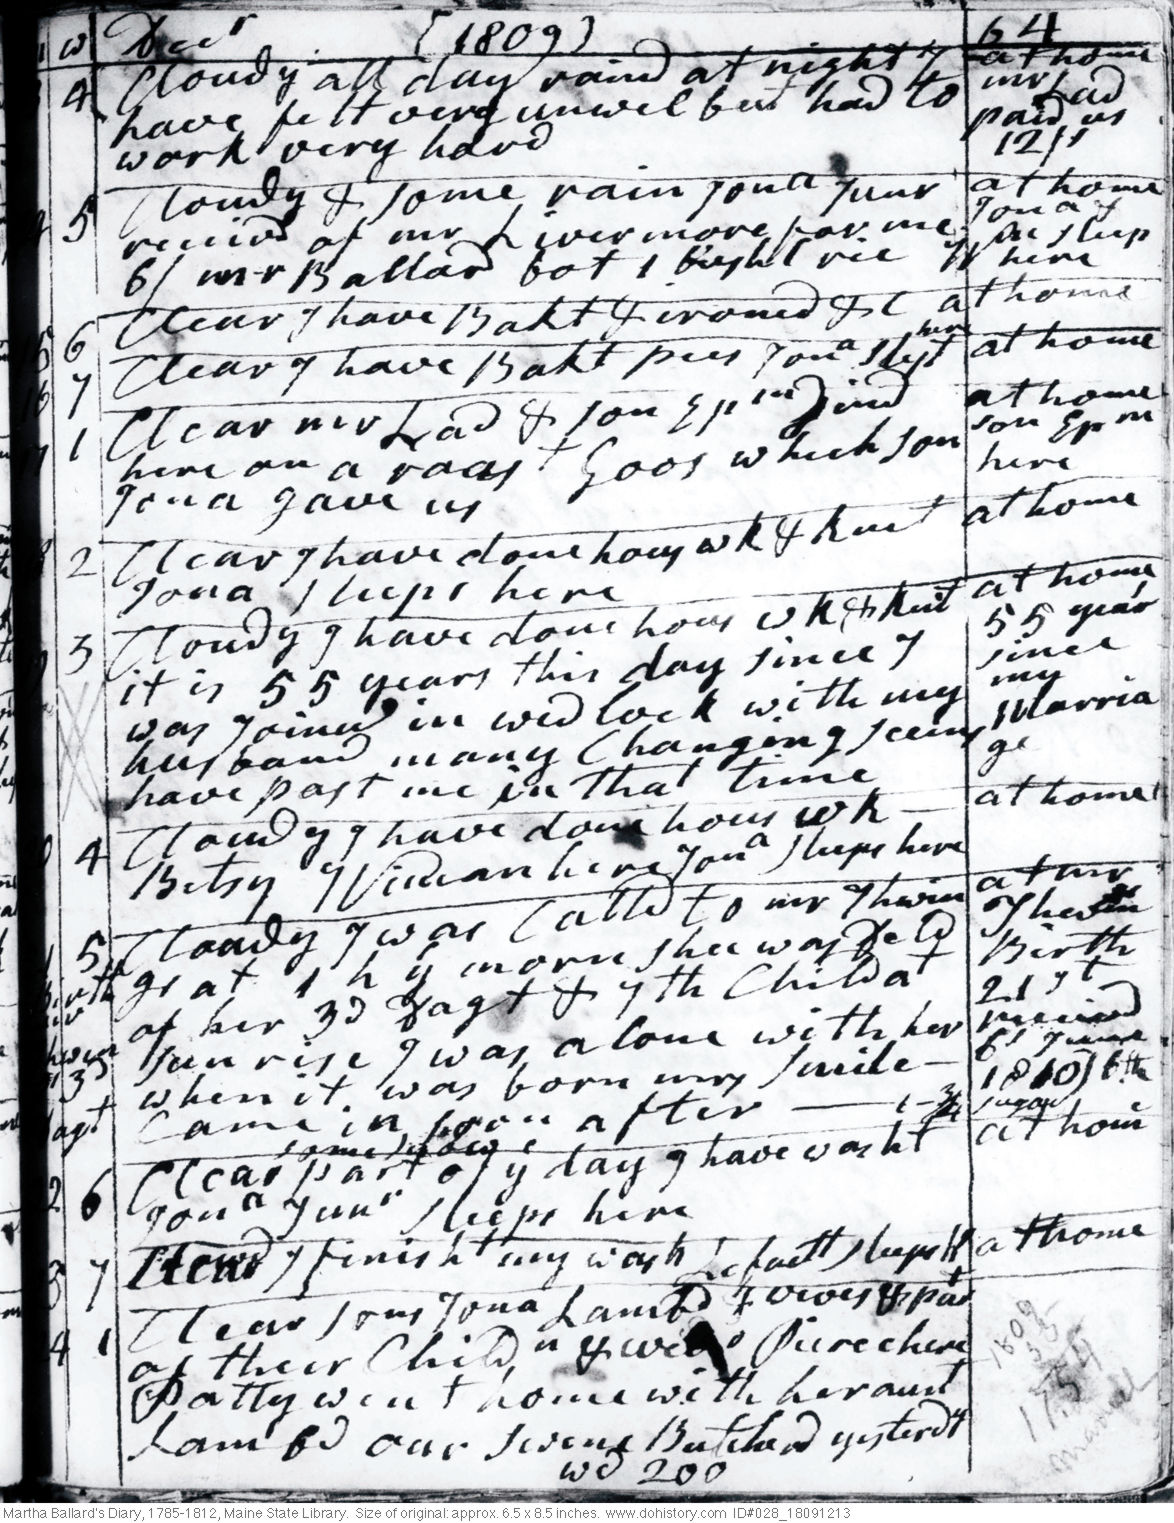 w Decr [1809] 64
4 Cloudy all day raind at night I at home
have felt very unwel but had to mr Lad
work very hard paid us
12/
5 Cloudy & some rain Jona Junr at home
receivd of mr Livermore for me Jona &
6/ mr Ballard bot 1 bushl rie sleep
here
6 Clear I have Bakt & ironed &C at home
7 Clear I have Bakt pies Jona slept here at home
1 Clear mr Lad & son Epm Dind at home
here on a roast Goos which son son Epm
Jona gave us here
2 Clear I have done hous wk & knit at home
Jona sleeps here
3 Cloudy I have done hous wk & knit at home
it is 55 years this day since I 55 years
was Joind in wedlock with my since
husband many Changing seens my
have past me in that time Marria
ge
4 Cloudy I have done hous wk — at home
Betsy here Jona sleeps here
5 Cloudy I was Calld to mr Thwin at mr
gs at 1 h y morn shee was Deld Thewin
of her 3d Dagt & 7th Child at Birth
sun rise I was alone with her 21st
when it was born mrs Smile — received
Came in soon after — 6/ June
1810 6 th
sugar
6 Clear part of y day I have washt at home
some snow
Jona Junr sleeps here
7 I finisht my wash sleeps here at home
1 Clear sons Jona Lambd & wives & part
of their Childn & were here
Patty went home with her aunt
Lambd our swine Butcherd yesterdy
wd 200
1809
1754
Martha Ballard's Diary, 1785-1812, Maine State Library. Size of original: approx. 6.5 x 8.5 inches. www.dohistory.com ID#028_18091213